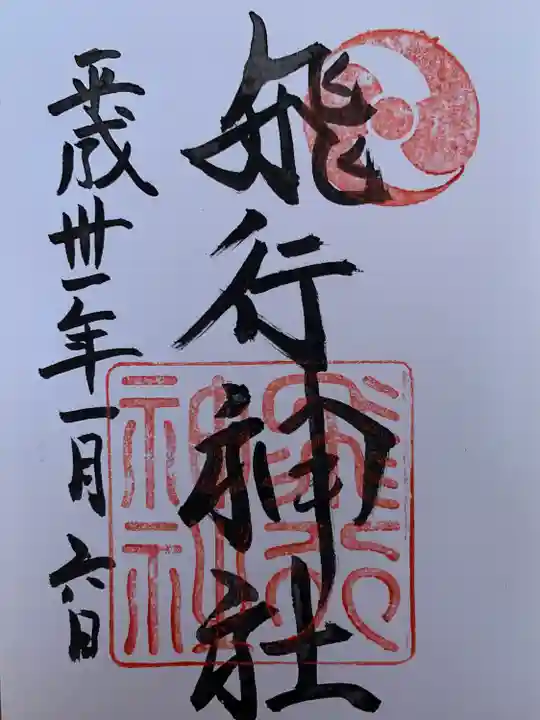 飛行神社
平成卅一年一月六日
飛行神社